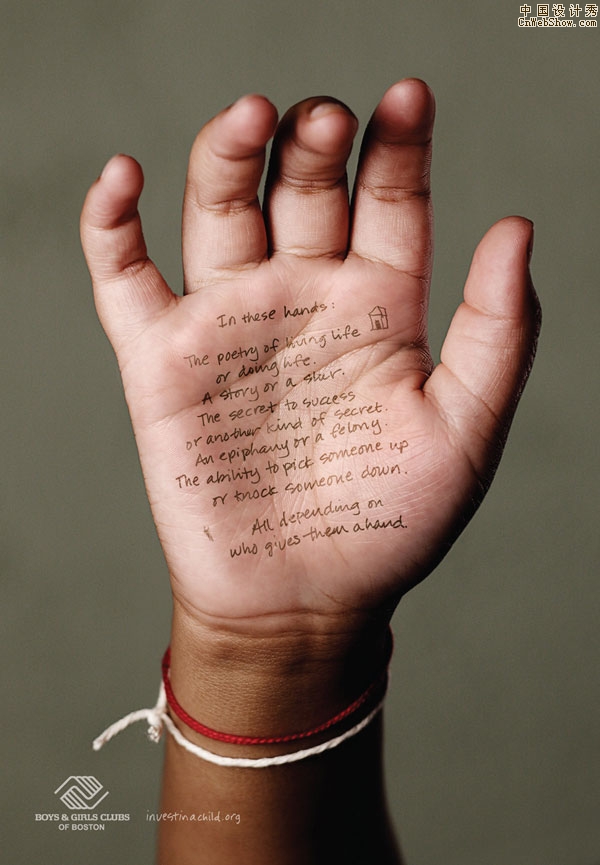 中国设计秀
CnWebShow.com
In these hands:
The poetry of living life
or doing life.
A story or a slur.
The secret to success
or another kind of secret.
An epiphany or a felony.
The ability to pick someone up
or knock someone down.
All depending on
who gives them a hand.
BOYS & GIRLS CLUBS
OF BOSTON
investinachild.org